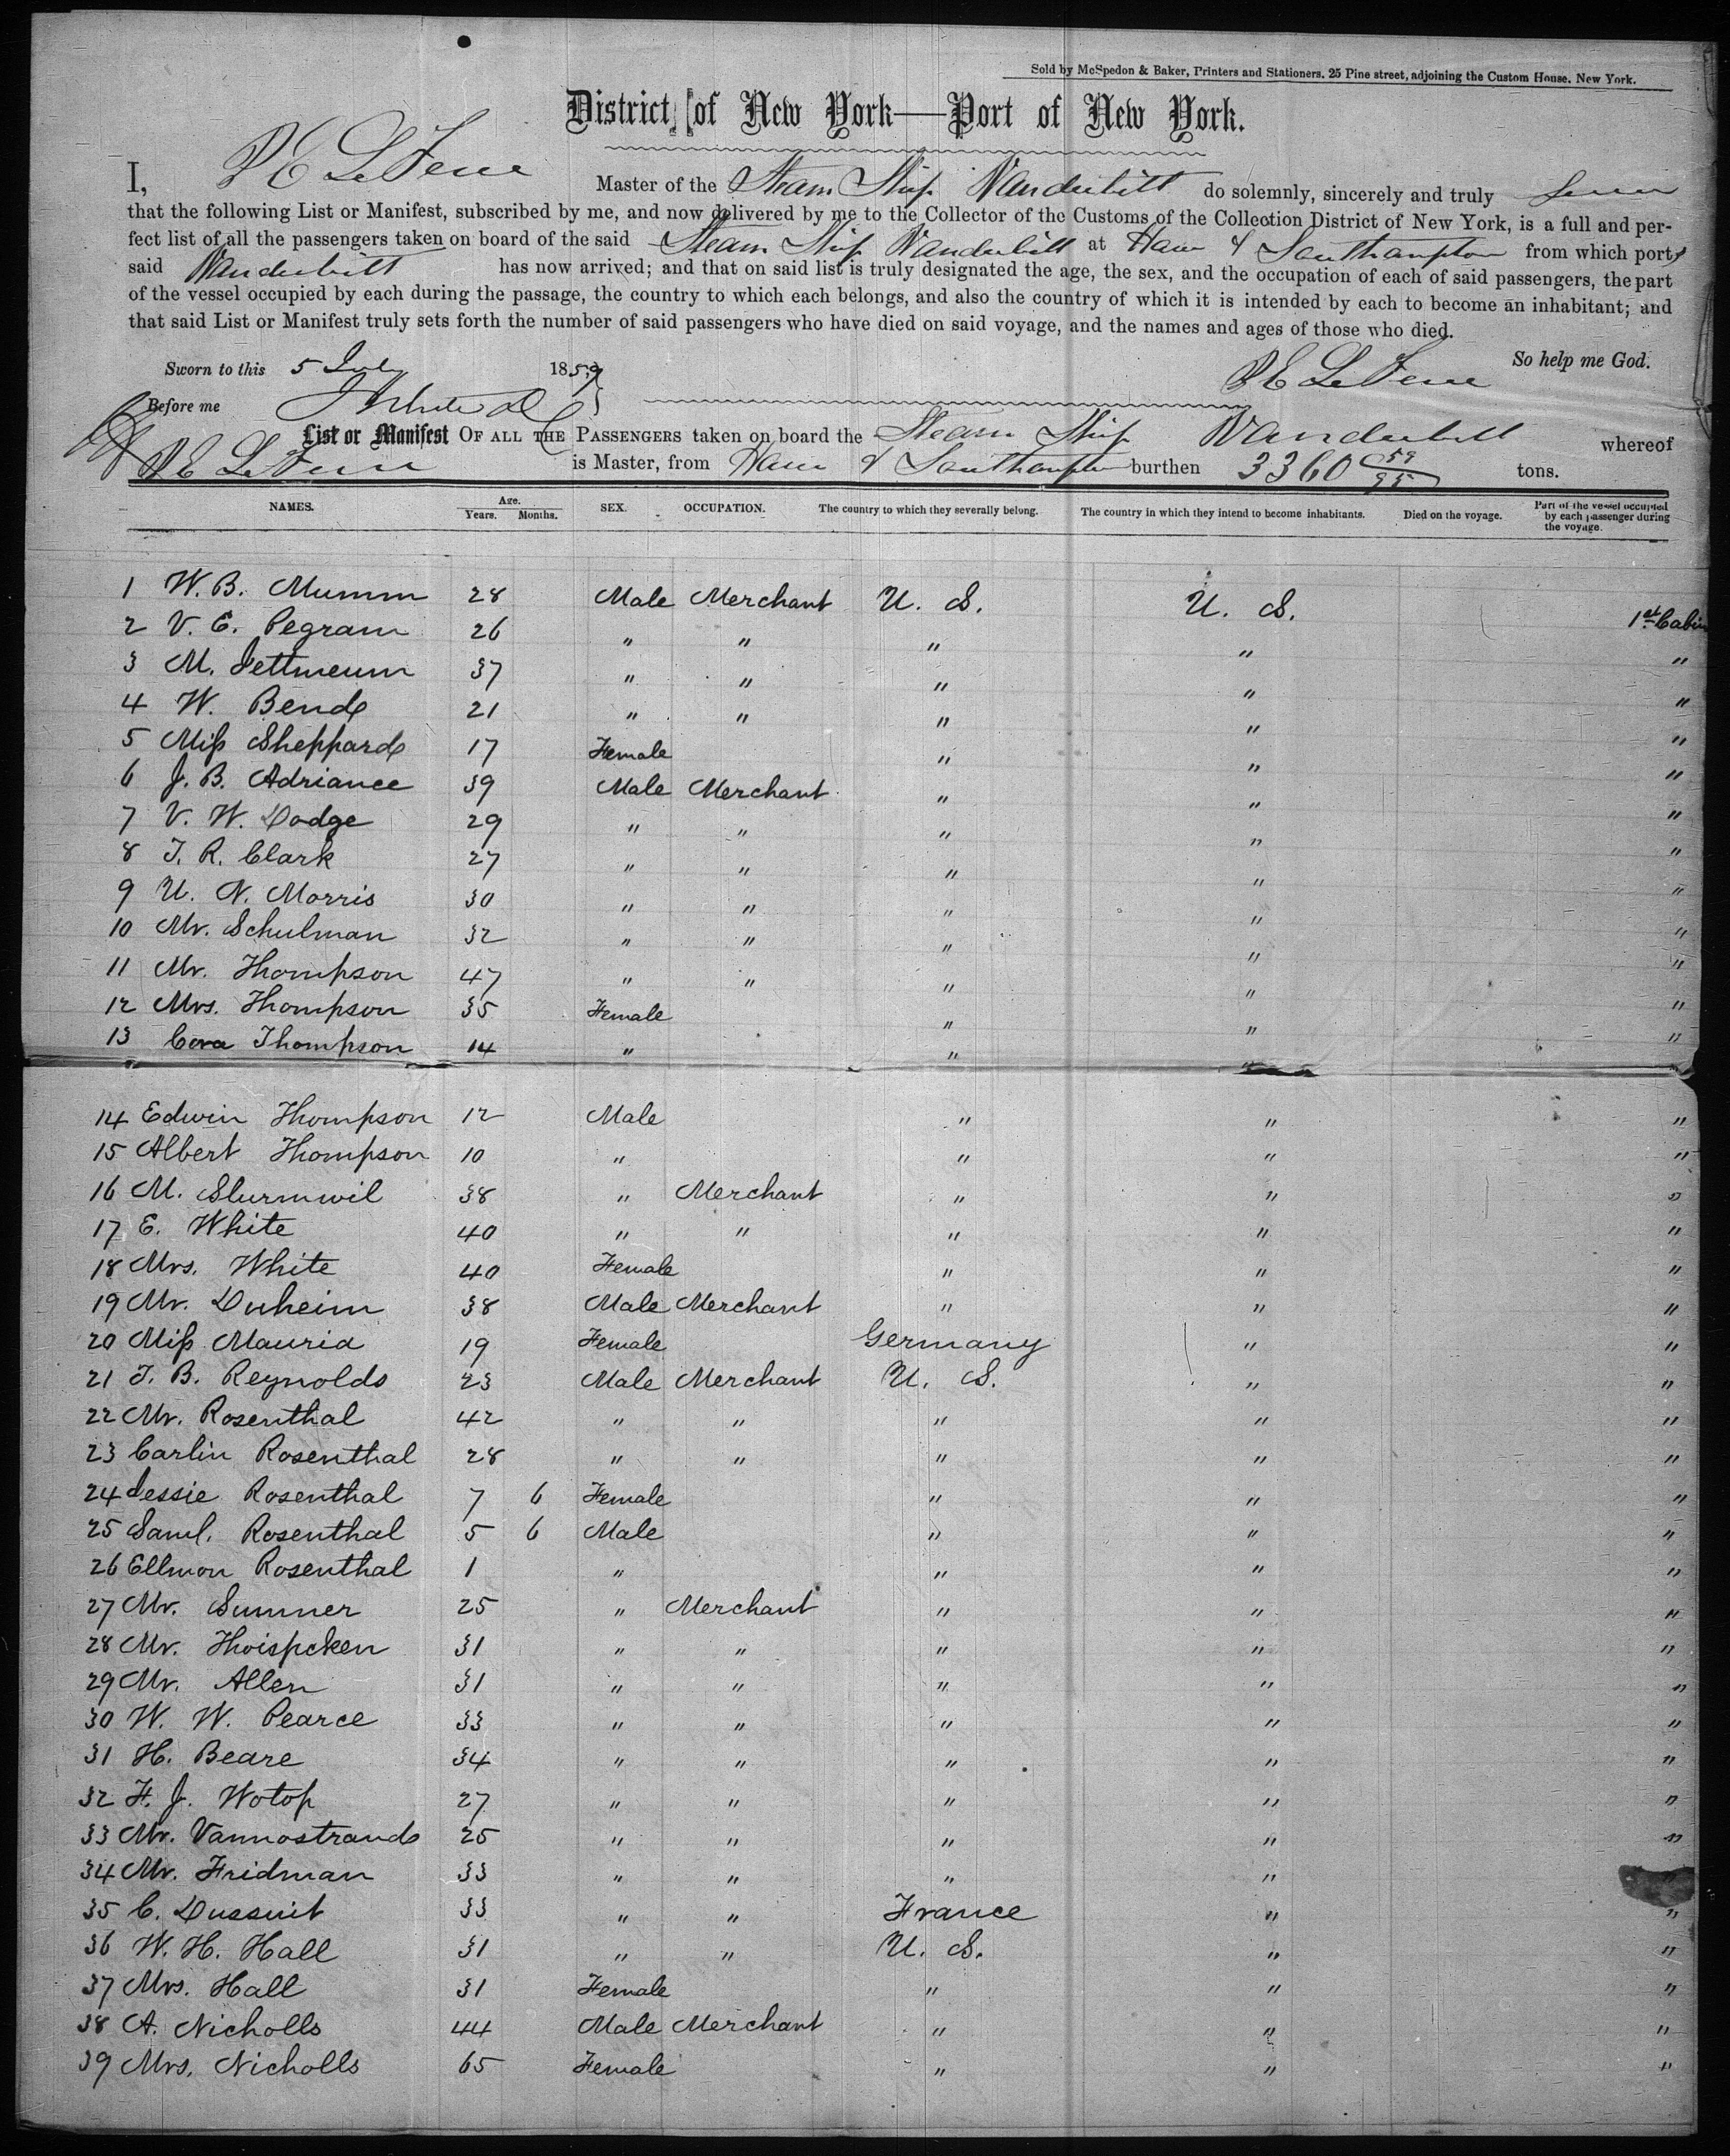 Sold by McSpedon & Baker, Printers and Stationers. 25 Pine street, adjoining the Custom House. New York.
District of New York—Port of New York.
I, P E LeFevre Master of the Steam Ship Vanderbilt do solemnly, sincerely and truly swear
that the following List or Manifest, subscribed by me, and now delivered by me to the Collector of the Customs of the Collection District of New York, is a full and per-
fect list of all the passengers taken on board of the said Steam Ship Vanderbilt at Havre & Southampton from which ports
said Vanderbilt has now arrived; and that on said list is truly designated the age, the sex, and the occupation of each of said passengers, the part
of the vessel occupied by each during the passage, the country to which each belongs, and also the country of which it is intended by each to become an inhabitant; and
that said List or Manifest truly sets forth the number of said passengers who have died on said voyage, and the names and ages of those who died.
So help me God.
Sworn to this 5 July 1859 P E LeFevre
Before me
List or Manifest OF ALL THE PASSENGERS taken on board the Steam Ship Vanderbilt whereof
P E LeFevre is Master, from Havre & Southampton burthen 3360 59/95 tons.
NAMES. Age. Years. Months. SEX. OCCUPATION. The country to which they severally belong. The country in which they intend to become inhabitants. Died on the voyage. Part of the vessel occupied by each passenger during the voyage.
1 W. B. Mumm 28 Male Merchant U. S. U. S. 1st Cabin
2 V. E. Pegram 26 " " " " "
3 M. Jettmeum 37 " " " " "
4 W. Bend 21 " " " " "
5 Miss Sheppard 17 Female " " "
6 J. B. Adriance 39 Male Merchant " " "
7 V. W. Dodge 29 " " " " "
8 T. R. Clark 27 " " " " "
9 U. N. Morris 30 " " " " "
10 Mr. Schulman 32 " " " " "
11 Mr. Thompson 47 " " " " "
12 Mrs. Thompson 35 Female " " "
13 Cora Thompson 14 " " " "
14 Edwin Thompson 12 Male " " "
15 Albert Thompson 10 " " " "
16 M. Slurmwil 38 " Merchant " " "
17 E. White 40 " " " " "
18 Mrs. White 40 Female " " "
19 Mr. Duheim 38 Male Merchant " " "
20 Miss Maurid 19 Female Germany " "
21 T. B. Reynolds 23 Male Merchant U. S. " "
22 Mr. Rosenthal 42 " " " " "
23 Carlin Rosenthal 28 " " " " "
24 Jessie Rosenthal 7 6 Female " " "
25 Saml. Rosenthal 5 6 Male " " "
26 Ellmon Rosenthal 1 " " " "
27 Mr. Sumner 25 " Merchant " " "
28 Mr. Thoispcken 31 " " " " "
29 Mr. Allen 31 " " " " "
30 W. W. Pearce 33 " " " " "
31 H. Beare 34 " " " " "
32 F. J. Wotop 27 " " " " "
33 Mr. Vannostrand 25 " " " " "
34 Mr. Fridman 33 " " " " "
35 C. Dussuit 33 " " France " "
36 W. H. Hall 31 " " U. S. " "
37 Mrs. Hall 31 Female " " "
38 A. Nicholls 44 Male Merchant " " "
39 Mrs. Nicholls 65 Female " " "